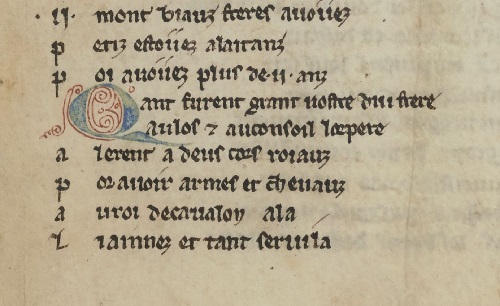 .II. mont biauz freres auoiiez
petiz estoiiez alaitanz
poi auoiiez plus de .ii. anz
Qant furent grant uostre dui frere
aulos ⁊ au consoil lor pere
alerent a deus corz roiauz
por auoir armes et cheuauz
au roi decaualon ala
li ainnez et tant serui la